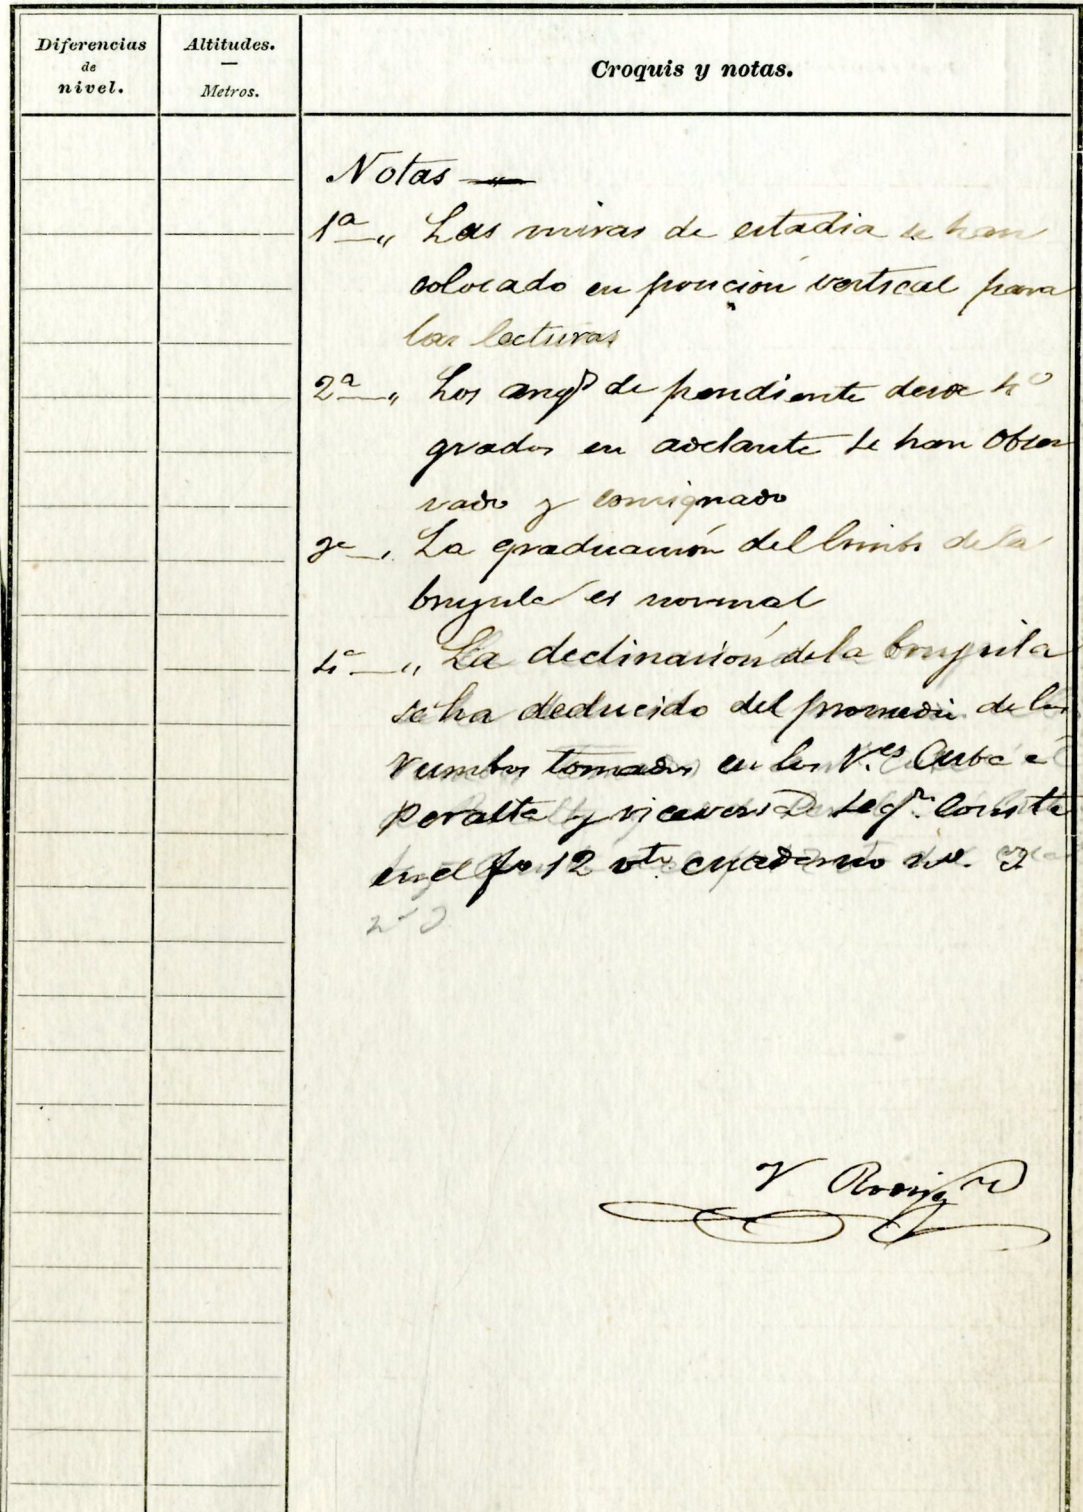 Diferencias
de
nivel.
Altitudes.
—
Metros.
Croquis y notas.
Notas —
1ª—„ Las miras de estadia se han
colocado en posición vertical para
las lecturas
2ª—„ Los angˢ de pendiente desde 4º
grados en adelante se han obser
vado y consignado
3ª—„ La graduación del limbo de la
brujula es normal
4ª—„ La declinación de la brujula
se ha deducido del promedio de los
rumbos tomados en los V.ᵉˢ Cuba á
Peralta y viceversa segⁿ. consta
en el fº 12 vtº cuaderno nº. 3
nº 3
V Rodrigᶻ